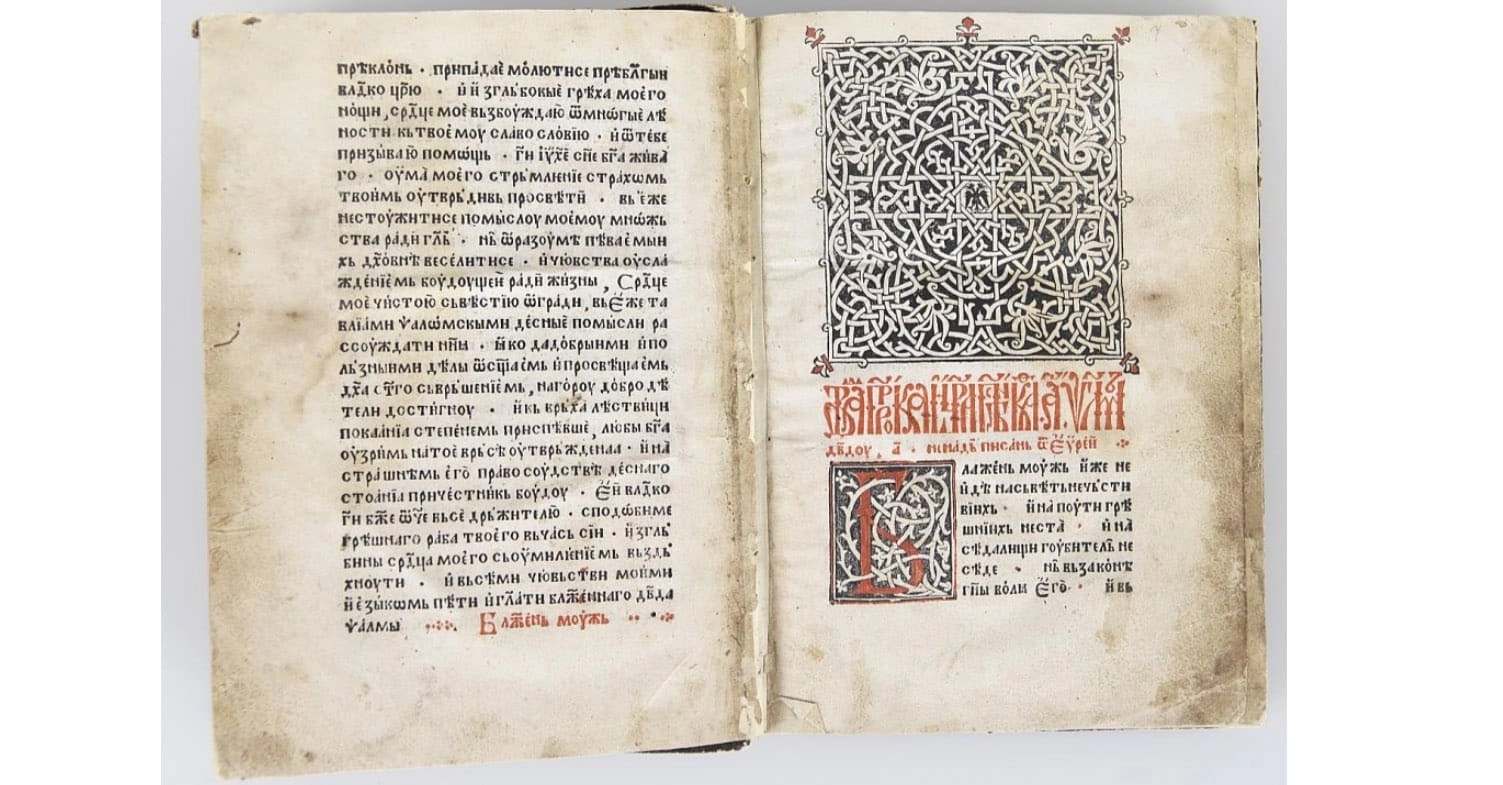 прѣкло́нь · припа́дае мо́лютисе прѣбл҃гыи
влⷣко цр҃ю · и҆ и҆ згль́бокыє грѣ́ха моего
нощи , срⷣце моє́ възбоуждаю ѿмно́гыє лѣ
ности къ твоє́моу славо сло́вїю · и҆ ѿте́бе
призы́ваю по́мощь · г҃и і҆у҃хе сн҃е б҃га жи́ва
го · оума мое́го стрьмлениіе стра́хѡмь
твоимь оутврь́дивь просвѣти · вь є҆́же
не стоужи́тисе помы́слоу моє́моу мно́жь
ства ра́ди гл҃ь · нь ѿра́зоумѣ пѣ́ваемыи
хь дх҃о́внѣ весели́тисе · и҆ чю́вства оусла
жде́нїемь боу́доущеи ра́ди жи́зны , Срⷣце
моє чи́стою съвѣстїю ѡ҆гра́ди , вь є҆́же та
влїами ѱалѡ́мскыми де́сныє по́мысли ра
ссоужда́ти нн҃и · ꙗ҆ко да до́брыими и҆ по
льзныими дѣ́лы ѿсщ҃аемь и҆ просвѣща́ємь
дх҃а ст҃го съврьше́нїємь , на го́роу до́бро дѣ
тели дости́гноу · и҆ кь врь́ха лѣ́ствици
покаа́нїа степе́немь приспѣ́вше , лю́бы б҃га
оузримь на то́є врь́сѣ оутврь́жденаа · и҆ на
стра́шнѣмь е҆го́ пра́во соу́дствѣ десна́го
стоа́нїа приче́стникь боу́доу · Є҆й влⷣко
г҃и бж҃е ѿч҃е въсе́ дрь́жителю · спо́добиме
грѣ́шнаго ра́ба твое́го въ ча́сь сїи · и҆згль
бины срⷣца мое́го съ оумиле́нїємь въздь
хноути · и҆ въсѣми чю́вьстви мои́ми
и҆ є҆зы́комь пѣ́ти и҆ гла́ти блаже́ннаго дв҃да
ѱа́лмы Блаже́нь моу́жь
дв҃доу , а҃ · ни надь писань ѿ є҆ѵрей
Б лаже́нь моу́жь и҆же не
и҆́де на съвѣть нечьсти
віихь · и҆ на поу́ти грѣ
шнїихь не ста · и҆ на
сѣда́лищи гоу́битель не
сѣ́де · нь въ зако́нѣ
гн҃ы во́лы є҆го · и҆ вь